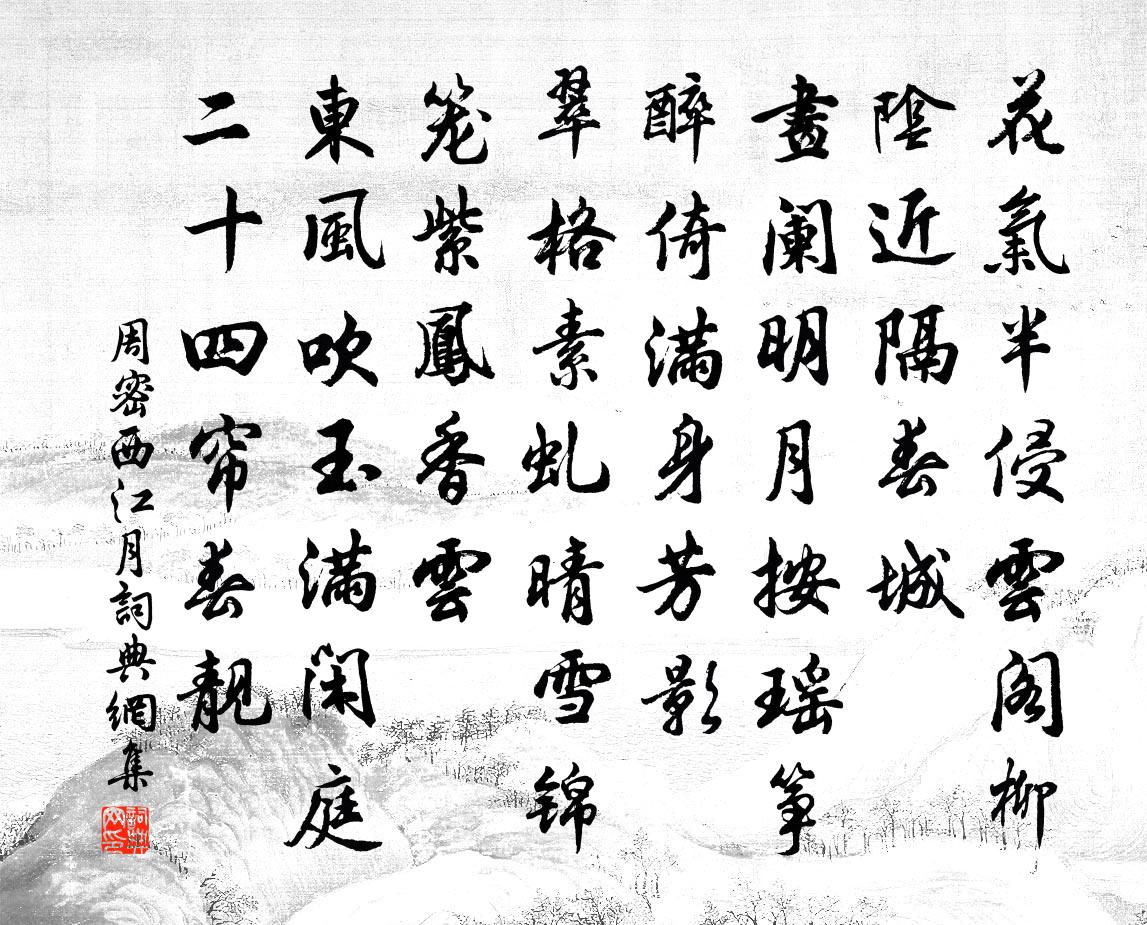 花氣半侵雲閣柳
陰近隔春城
畫闌明月按瑶筝
醉倚滿身芳影
翠格素虬晴雪錦
笼紫鳳香雲
東風吹玉滿闲庭
二十四帘春靓
周密西江月詞典網集
詞典網印